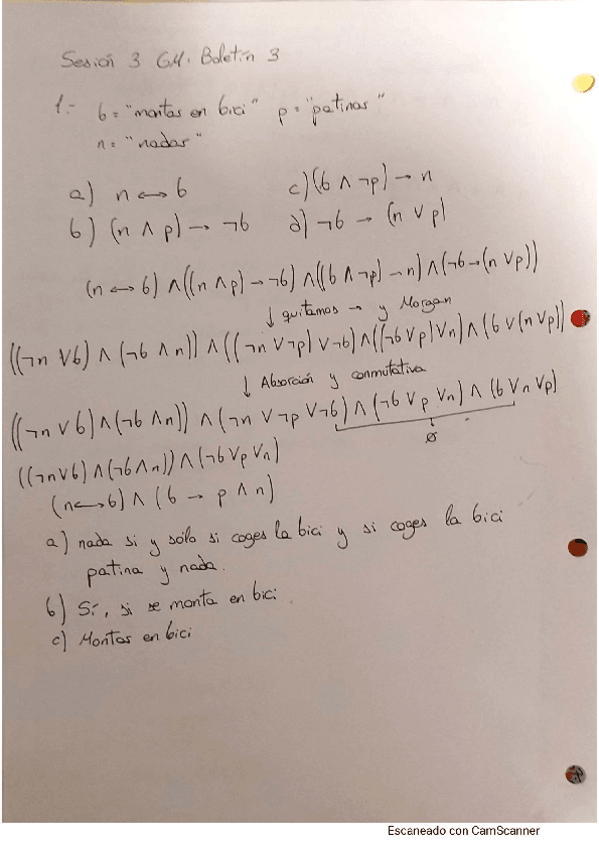 Sesión 3 GM. Boletín 3
1.- b = "montas en bici" p = "patinas"
n = "nadas"
a) n ↔ b c) (b ∧ ¬p) → n
b) (n ∧ p) → ¬b d) ¬b → (n ∨ p)
(n ↔ b) ∧ ((n ∧ p) → ¬b) ∧ ((b ∧ ¬p) → n) ∧ (¬b → (n ∨ p))
↓ quitamos → y Morgan
((¬n ∨ b) ∧ (¬b ∧ n)) ∧ ((¬n ∨ ¬p) ∨ ¬b) ∧ ((¬b ∨ p) ∨ n) ∧ (b ∨ (n ∨ p))
↓ Absorción y conmutativa
((¬n ∨ b) ∧ (¬b ∧ n)) ∧ (¬n ∨ ¬p ∨ ¬b) ∧ (¬b ∨ p ∨ n) ∧ (b ∨ n ∨ p)
ø
((¬n ∨ b) ∧ (¬b ∧ n)) ∧ (¬b ∨ p ∨ n)
(n ↔ b) ∧ (b → p ∧ n)
a) nada si y sólo si coges la bici y si coges la bici
patina y nada.
b) Sí, si se monta en bici
c) Montas en bici
Escaneado con CamScanner